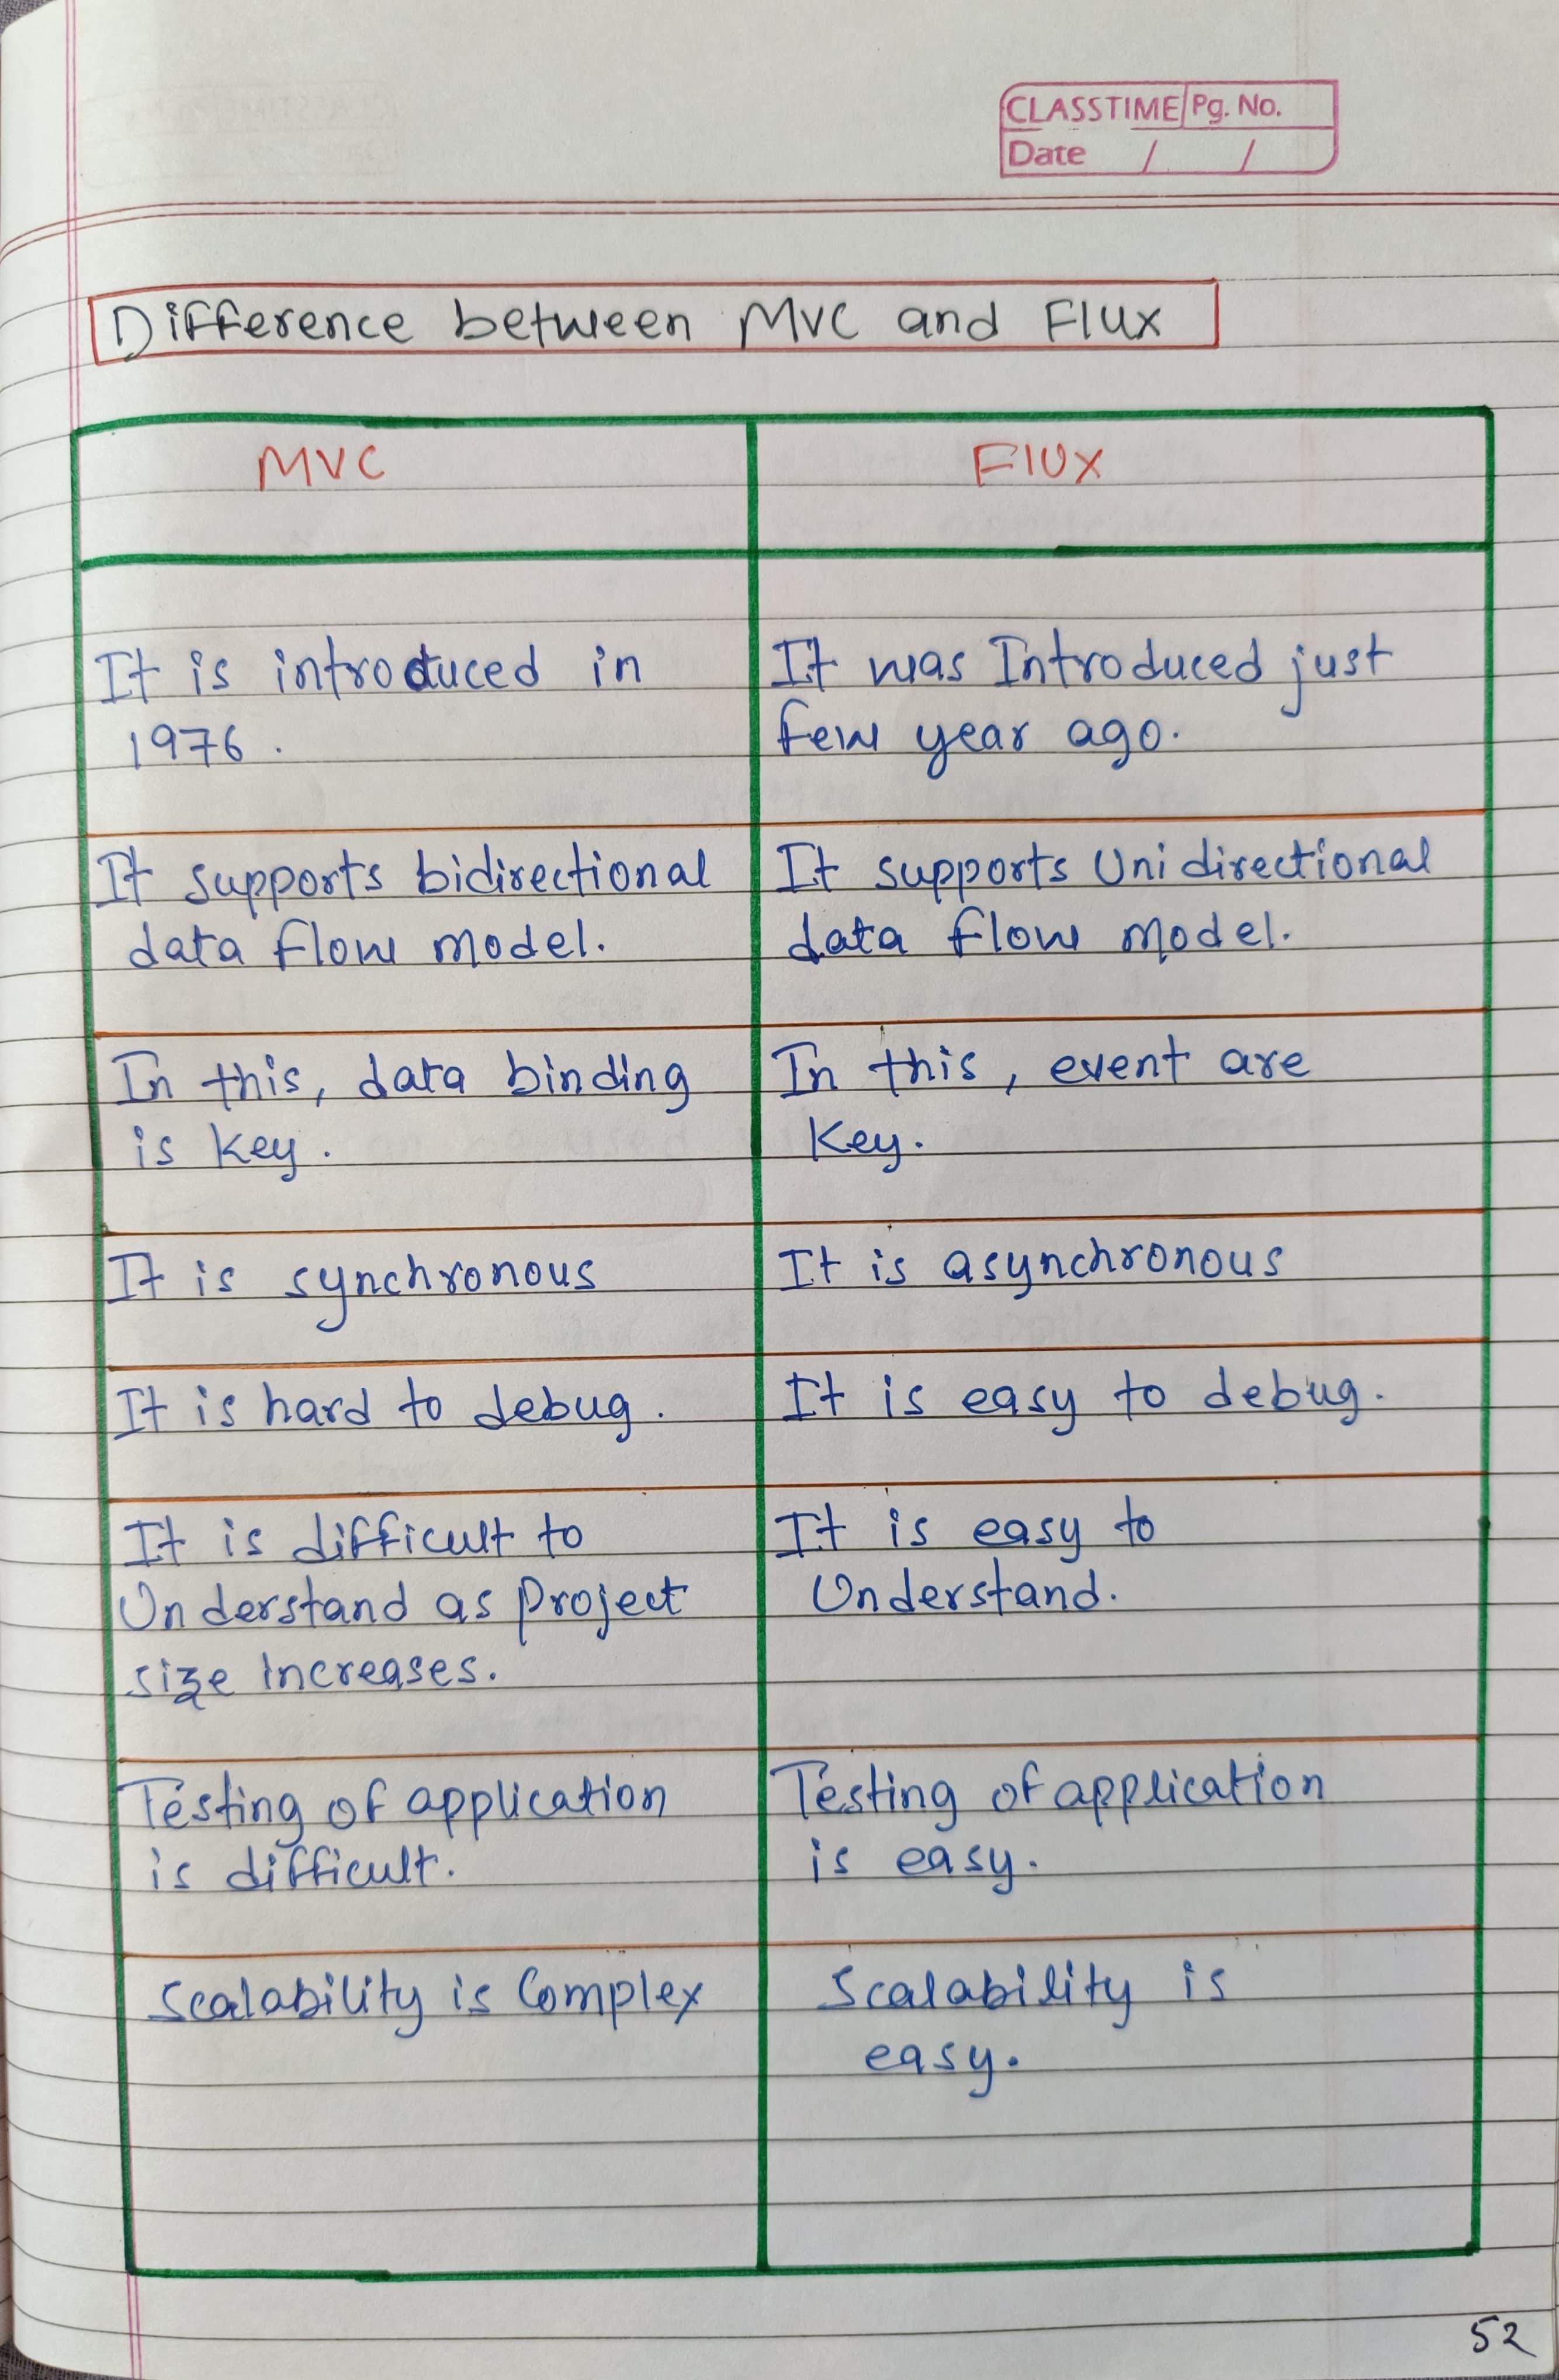 CLASSTIME Pg. No.
Date / /
Difference between MVC and Flux
MVC
Flux
It is introduced in
1976.
It was Introduced just
few year ago.
It supports bidirectional
data flow model.
It supports Unidirectional
data flow model.
In this, data binding
is key.
In this, event are
Key.
It is synchronous
It is asynchronous
It is hard to debug.
It is easy to debug.
It is difficult to
Understand as Project
size increases.
It is easy to
Understand.
Testing of application
is difficult.
Testing of application
is easy.
Scalability is Complex
Scalability is
easy.
52